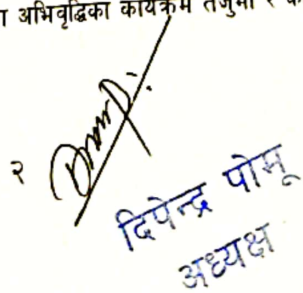 अभिवृद्धिका कार्यक्रम तर्जुमा र
२
दिपेन्द्र पोमू
अध्यक्ष